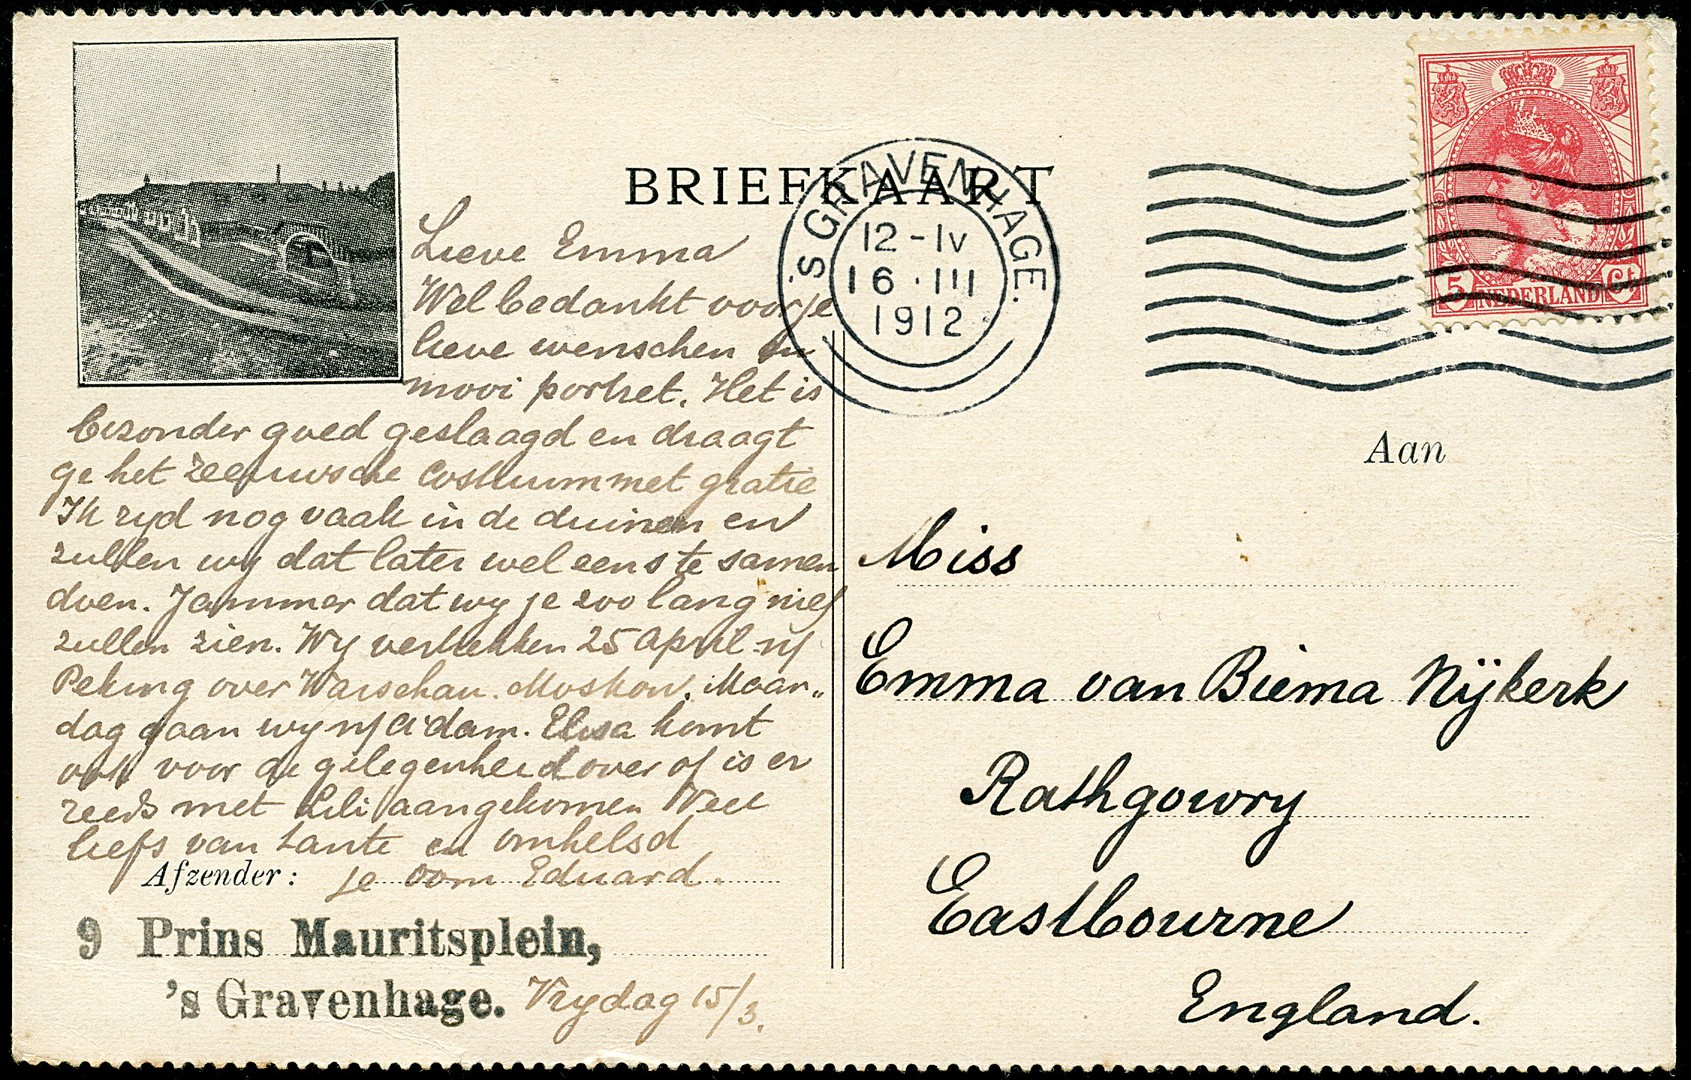 BRIEFKAART
'S GRAVENHAGE.
12-IV
16·III
1912
5 NEDERLAND Ct
Lieve Emma
Wel bedankt voor je
lieve wenschen en
mooi portret. Het is
bezonder goed geslaagd en draagt
ge het Zeeuwsche Costuum met gratie
Ik ryd nog vaak in de duinen en
zullen wy dat later wel eens te samen
doen. Jammer dat wy je zoo lang niet
zullen zien. Wy vertrekken 25 April
Peking over Warschau. Moskou. Maan„
dag gaan wy A'dam. Elisa komt
ook voor de gelegenheid over of is er
reeds met Lili aangekomen Veel
liefs van tante en omhelsd
Afzender: je Oom Eduard.
9 Prins Mauritsplein,
's Gravenhage. Vrydag 15/3.
Aan
Miss
Emma van Biema Nijkerk
Rathgowry
Eastbourne
England.